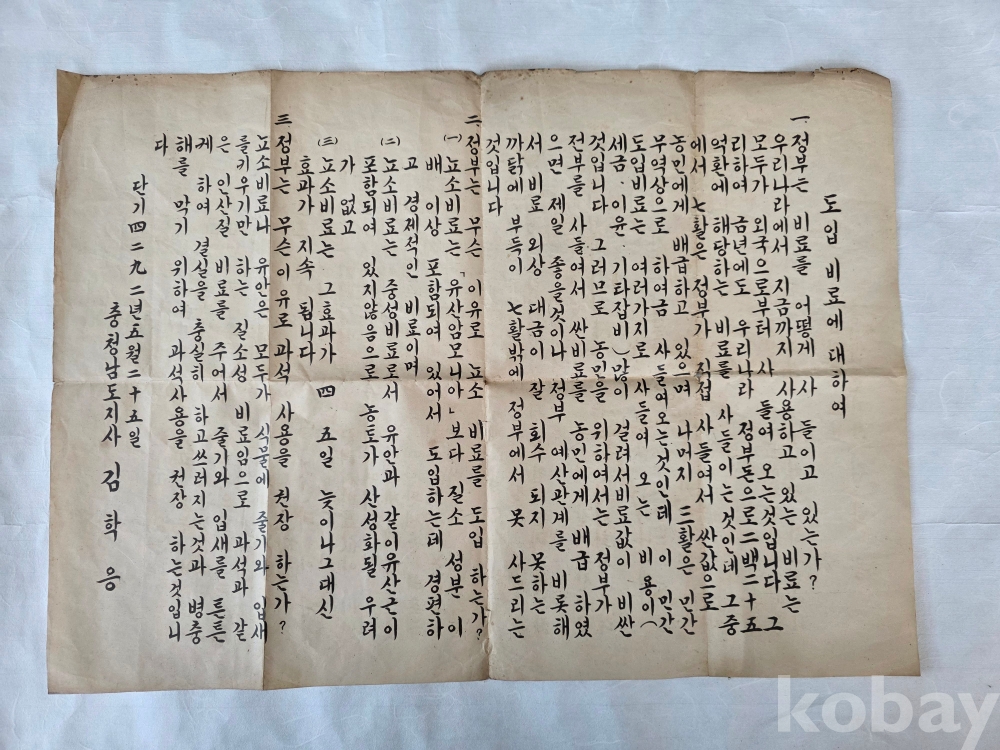 도입 비료에 대하여
一 정부는 비료를 어떻게 사 들이고 있는가?
우리나라에서 지금까지 사용하고 있는 비료는
모두가 외국으로부터 사 들여 오는것입니다 그
리하여 금년에도 우리나라 정부돈으로 二백二十五
억환에 해당하는 비료를 사들이는것인데 그중
에서 七활은 정부가 직접 사들여서 싼값으로
농민에게 배급하고 있으며 나머지 三활은 민간
무역상으로 하여금 사들여오는것인데 이 민간
도입비료는 여러가지로 사들여 오는 비용이 (
세금·이윤·기타잡비) 많이 걸려서비료값이 비싼
것입니다 그러므로 농민을 위하여서는 정부가
전부를 사들여서 싼비료를 농민에게 배급 하였
으면 제일 좋을것이나 정부 예산관계를 비롯해
서 비료 외상 대금이 잘 회수 되지 못하는
까닭에 부득이 七활밖에 정부에서 못 사드리는
것입니다
二 정부는 무슨 이유로 뇨소 비료를 도입 하는가?
(一) 뇨소비료는 「유산암모니아」보다 질소 성분이
배 이상 포함되여 있어서 도입하는데 경편하
고 경제적인 비료이며
(二) 뇨소비료는 중성비료로서 유안과 같이유산근이
포함되여 있지않음으로 농토가 산성화될 우려
가 없고
(三) 뇨소비료는 그효과가 四 五일 늦이나그대신
효과가 지속 됩니다
三 정부는 무슨이유로 과석 사용을 권장 하는가?
뇨소비료나 유안은 모두가 식물에 줄기와 입새
를키우기만 하는 질소성 비료임으로 과석과 같
은 인산질 비료를 주어서 줄기와 입새를 튼튼
케 하여 결실을 충실히 하고쓰러지는것과 병충
해를 막기 위하여 과석사용을 권장 하는것입니
다
단기四二九二년五월二十五일
충청남도지사 김 학 응
kobay